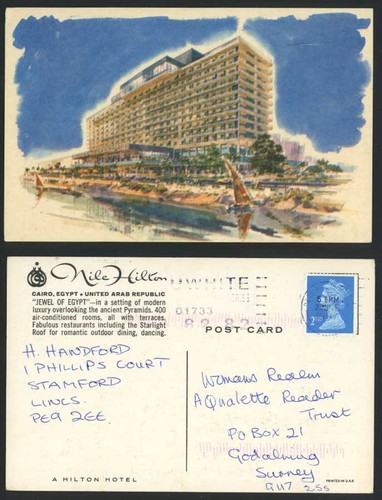 Nile Hilton
CAIRO, EGYPT • UNITED ARAB REPUBLIC
"JEWEL OF EGYPT"—in a setting of modern
luxury overlooking the ancient Pyramids. 400
air-conditioned rooms, all with terraces.
Fabulous restaurants including the Starlight
Roof for romantic outdoor dining, dancing.
WHITE
01733
POST CARD
2ND
H. HANDFORD
1 PHILLIPS COURT
STAMFORD
LINCS.
PE9 2EE.
Womans Realm
AQualette Reader
Trust
PO BOX 21
Godalming
Surrey
GU7 2SS
A HILTON HOTEL
PRINTED IN U.A.R.